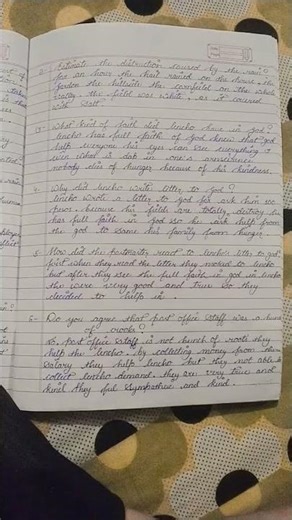 Estimate the distruction caused by the rain?
for an hour the hail rained on the house, the
garden the hillside the cornfield on the whole
valley. the field was white. as it covered
with salt.
What kind of faith did lencho have in god?
lencho has full faith of god knew that god
help everyone his eyes can see everything
even what is in one's
nobody dies of hunger because of his kindness.
4. Why did lencho write letter to god?
lencho wrote a letter to god for ask him 100
pesos because his fields are totally destroy he
has full faith in god so he ask help from
the god to save his family from hunger.
5. How did the postmaster react to lencho's letter to god
first when they read the letter they to lencho
but after they see the full faith in god in lencho
the were very good and true so they
decided to help in.
6- Do you agree that post office staff was a bunch
of crooks?
No, post office staff is not bunch of they
help the lencho. by collecting money from their
salary they help lencho but they not able to
collect lencho demand. they are very true and
kind they ful sympathie and kind.